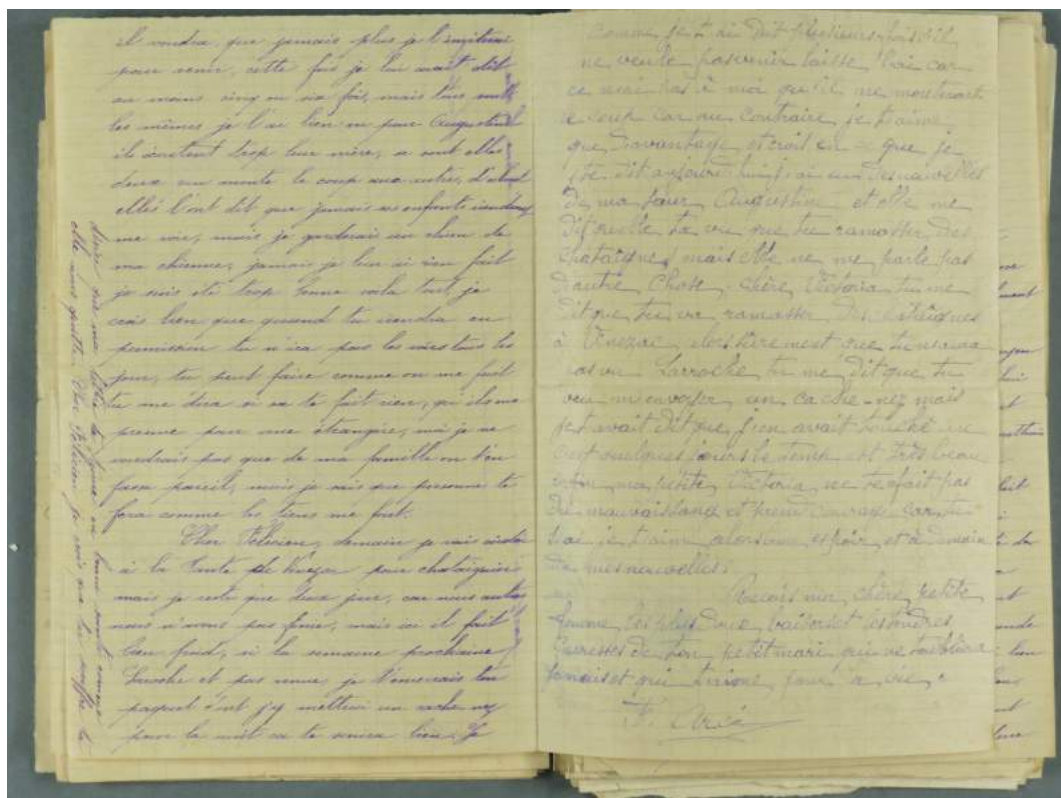 il voudra, que jamais plus je l'
pour venir, cette fois je lui avait dit
au moins cinq ou six fois, mais tous sont
les mêmes je l'ai bien vu pour Augustin
il écoutent trop leur mère, se sont elles
deux qui monte le coup aux autres, d'abord
elles l'ont dit que jamais ses enfants
me voir, mais je garderais un chien de
ma chienne, jamais je leur ai rien fait
je suis été trop bonne voila tout, je
crois bien que quand tu viendra en
permission tu n'ira pas les voir tous les
jour, tu peut faire comme on me fait
tu me dira si sa te fait rien, qu'ils me
prenne pour une étrangère, moi je ne
voudrais pas que de ma famille on t'en
face pareil, mais je suis que personne te
fera comme les tiens me font.
Cher Félicien, demain je vais
à la Tante de pour chataignes
mais je reste que deux jour, car nous autres
nous n'avons pas finie, mais ici il fait
bien froid, si la semaine prochaine
Laroche et pas venu, je t'enverais ton
paquet d'ont j'y mettrai un cache nez
pour la nuit sa te servira bien. Je
désire que ma lettre te trouve en bonne santé comme
elle nous quitte. Cher Félicien je crois que
comme je t'ai dit plusieurs fois s'il
ne veule pas venir laisse l'ai car
ce n'ai pas à moi qu'il me monteront
le coup car au contraire je t'aime
que d'avantage, et croit en ce que je
te dit aujourd'hui j'ai eu des nouvelles
de ma sœur Augustine et elle me
dit quelle ta vu que tu ramasser des
chataignes mais elle ne me parle pas
d'autre chose, chère Victoria tu me
dit que tu va ramasser des chataignes
à Vinezac, alors surement que tu n'aura
pas vu Larroche, tu me dit que tu
veu m'envoyer un cache-nez mais
je t'avait dit que j'en avait touché un
c'est quelques jours le temp est très beau
enfin ma petite Victoria ne te fait pas
du mauvais sang et prend courage car tu
sai je t'aime alors bonne espoir, et à demain
de mes nouvelles.
Reçois ma chère petite
femme les plus doux baisers et les tendres
Carresses de ton petit mari qui ne t'oubliera
jamais et qui t'aime pour la vie.
F.